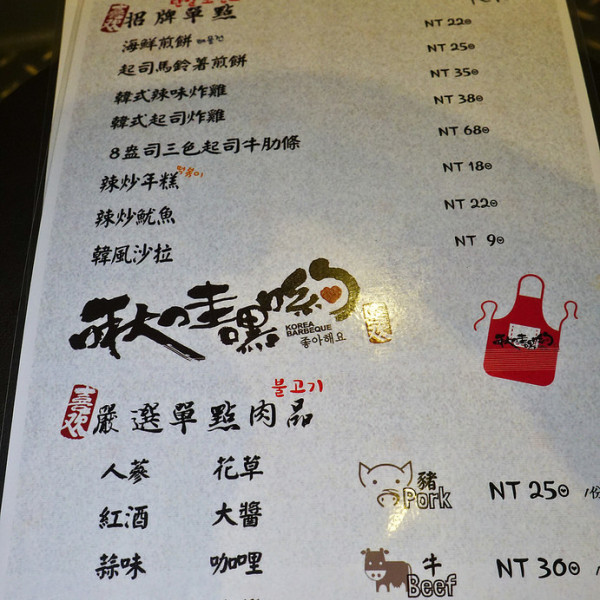 喜欢 招牌單點
海鮮煎餅 NT 220
起司馬鈴薯煎餅 NT 250
韓式辣味炸雞 NT 350
韓式起司炸雞 NT 380
8盎司三色起司牛肋條 NT 680
辣炒年糕 떡볶이 NT 180
辣炒魷魚 NT 220
韓風沙拉 NT 90
啾哇嘿喲
KOREA
BARBEQUE
좋아해요
啾哇嘿喲
불고기
喜欢 嚴選單點肉品
人蔘 花草 豬 Pork NT 250 /份
紅酒 大醬
蒜味 咖哩 牛 Beef NT 300